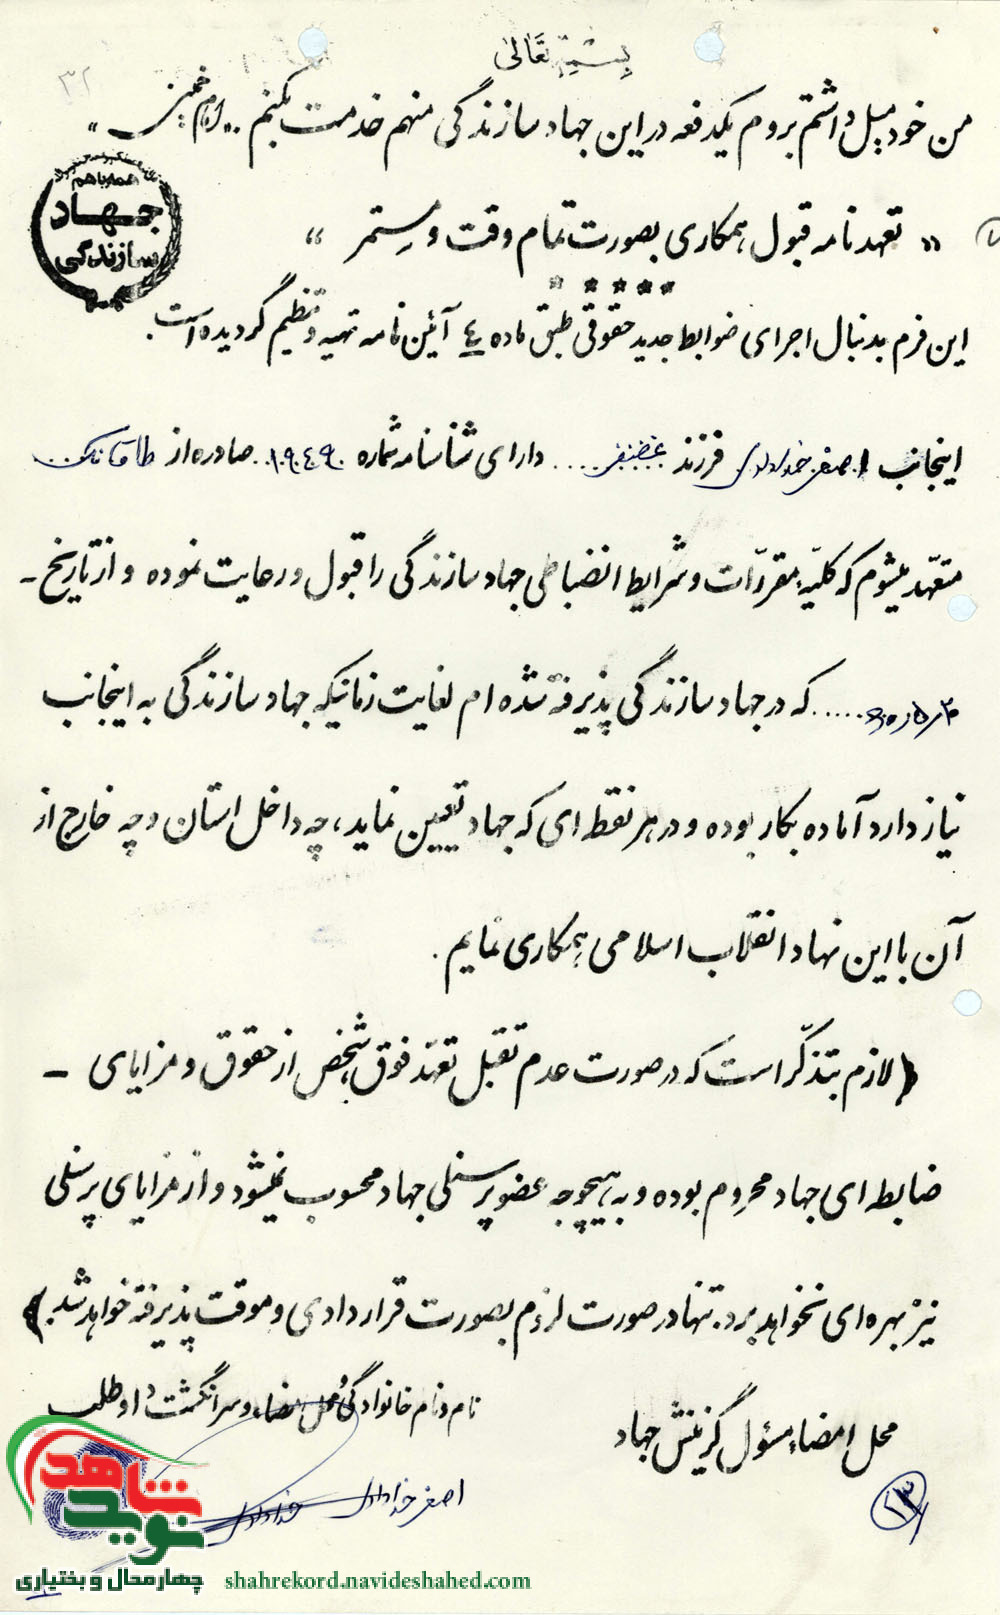 بسمه تعالی
۳۲
من خود میل داشتم بروم یکدفعه در این جهاد سازندگی منهم خدمت بکنم .. امام خمینی "
همه با هم
جهاد
سازندگی
" تعهدنامه قبول همکاری بصورت تمام وقت و مستمر "
*****
این فرم بدنبال اجرای ضوابط جدید حقوقی طبق ماده ٤ آئین نامه تهیه و تنظیم گردیده است.
اینجانب اصغر خدادادی فرزند غضنفر .... دارای شناسنامه شماره ۱۰۹۰٤۹۰ .. صادره از طاقانک
متعهّد میشوم که کلیّه مقررّات و شرایط انضباطی جهاد سازندگی را قبول و رعایت نموده و از تاریخ -
..... که در جهاد سازندگی پذیرفته شده ام لغایت زمانیکه جهاد سازندگی به اینجانب
نیاز دارد آماده بکار بوده و در هر نقطه ای که جهاد تعیین نماید، چه داخل استان و چه خارج از
آن با این نهاد انقلاب اسلامی همکاری نمایم .
( لازم بتذکّر است که در صورت عدم تقبل تعهّد فوق، شخص از حقوق و مزایای -
ضابطه ای جهاد محروم بوده و به هیچوجه عضو پرسنلی جهاد محسوب نمیشود و از مزایای پرسنلی
نیز بهره ای نخواهد برد. تنها در صورت لزوم بصورت قراردادی و موقت پذیرفته خواهد شد. )
نام و نام خانوادگی و محل امضاء و سر انگشت داوطلب
محل امضاء مسئول گزینش جهاد
اصغر خدادادی
خدادادی
۱۳
نوید شاهد
چهارمحال و بختیاری
shahrekord.navideshahed.com